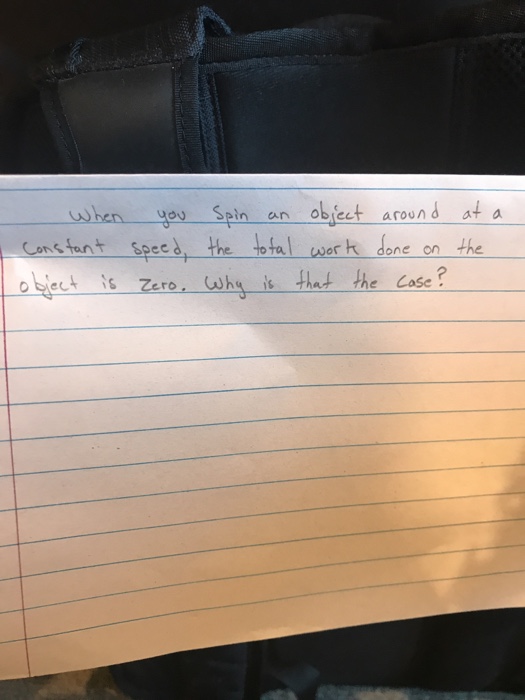 When you Spin an object around at a
Constant speed, the total work done on the
object is zero. Why is that the case?